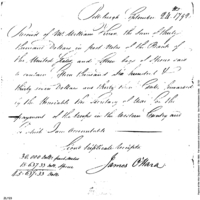 Pittsburgh September 24th 1792
Received of Mr. William the Sum of Thirty
Thousand Dollars in post notes of the Bank of
the United States and three bags of Specie said
to contain Fifteen Thousand Six hundred &
thirty seven Dollars and thirty three Cents, Committed
by the Honorable the Secretary of War for the
payment of the troops on the Western Country and
for which I am accountable
Signed triplicate Receipts
30,000 dollars post notes
15,637.33 dolls. Specie
45,637.33 Dolls
James O'Hara